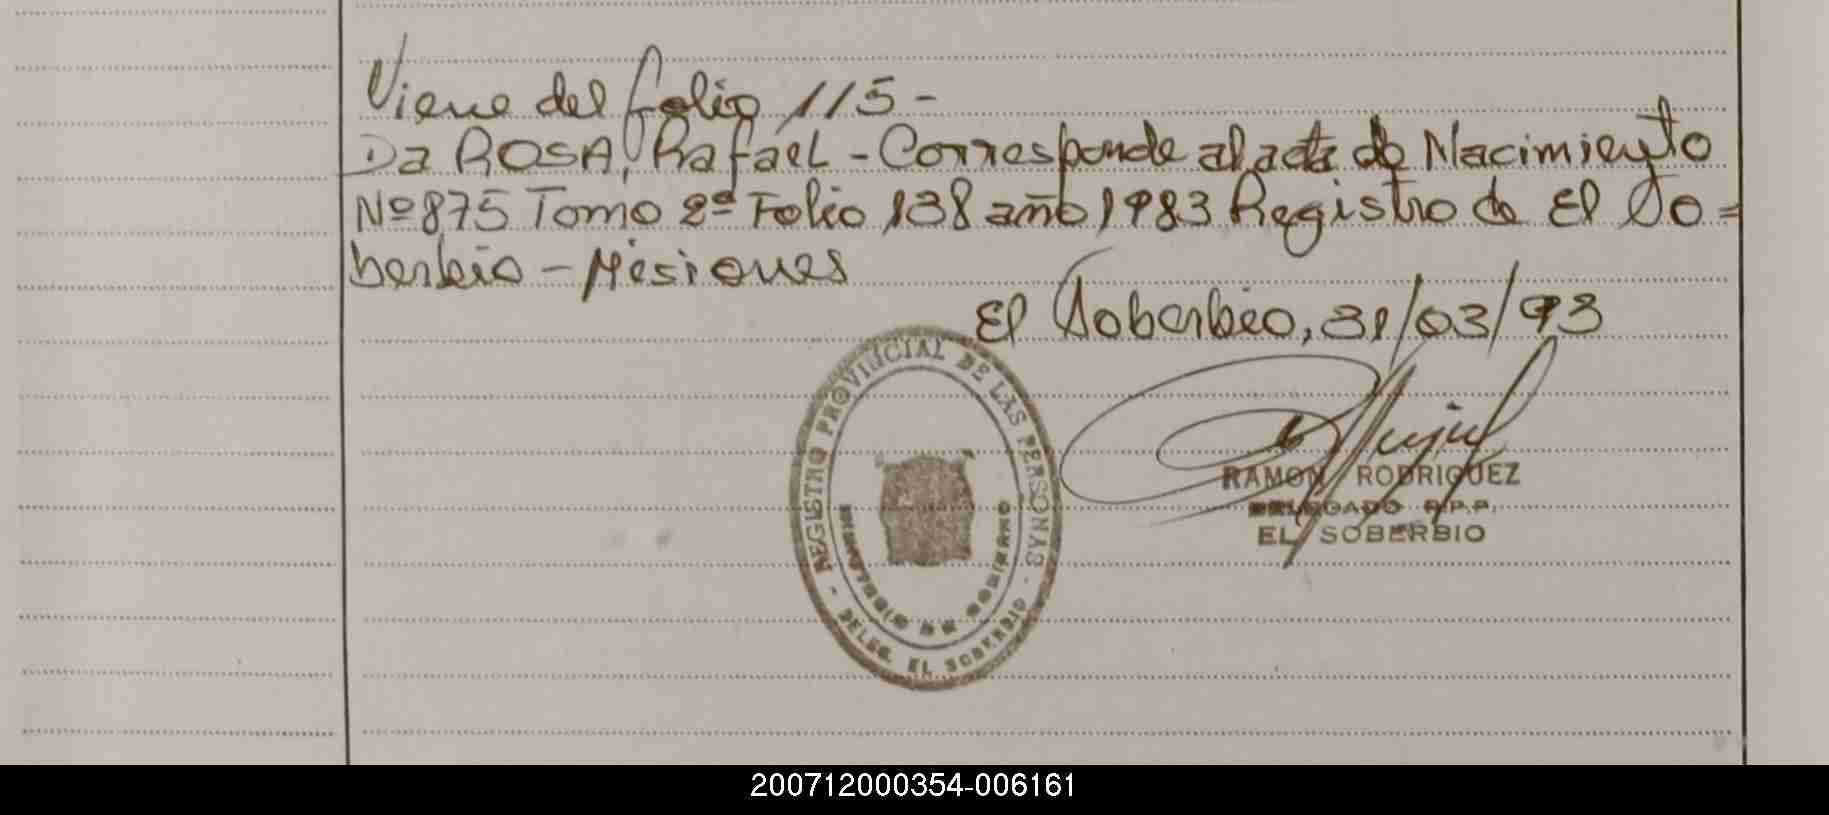 Viene del folio 115-
Da ROSA, Rafael - Corresponde al acta de Nacimiento
Nº 875 Tomo 2º Folio 138 año 1983 Registro de El So=
berbio - Misiones
El Soberbio, 31/03/93
REGISTRO PROVINCIAL DE LAS PERSONAS
MINISTERIO DE GOBIERNO
- DELEG. EL SOBERBIO -
RAMON RODRIGUEZ
DELEGADO R.P.P.
EL SOBERBIO
200712000354-006161